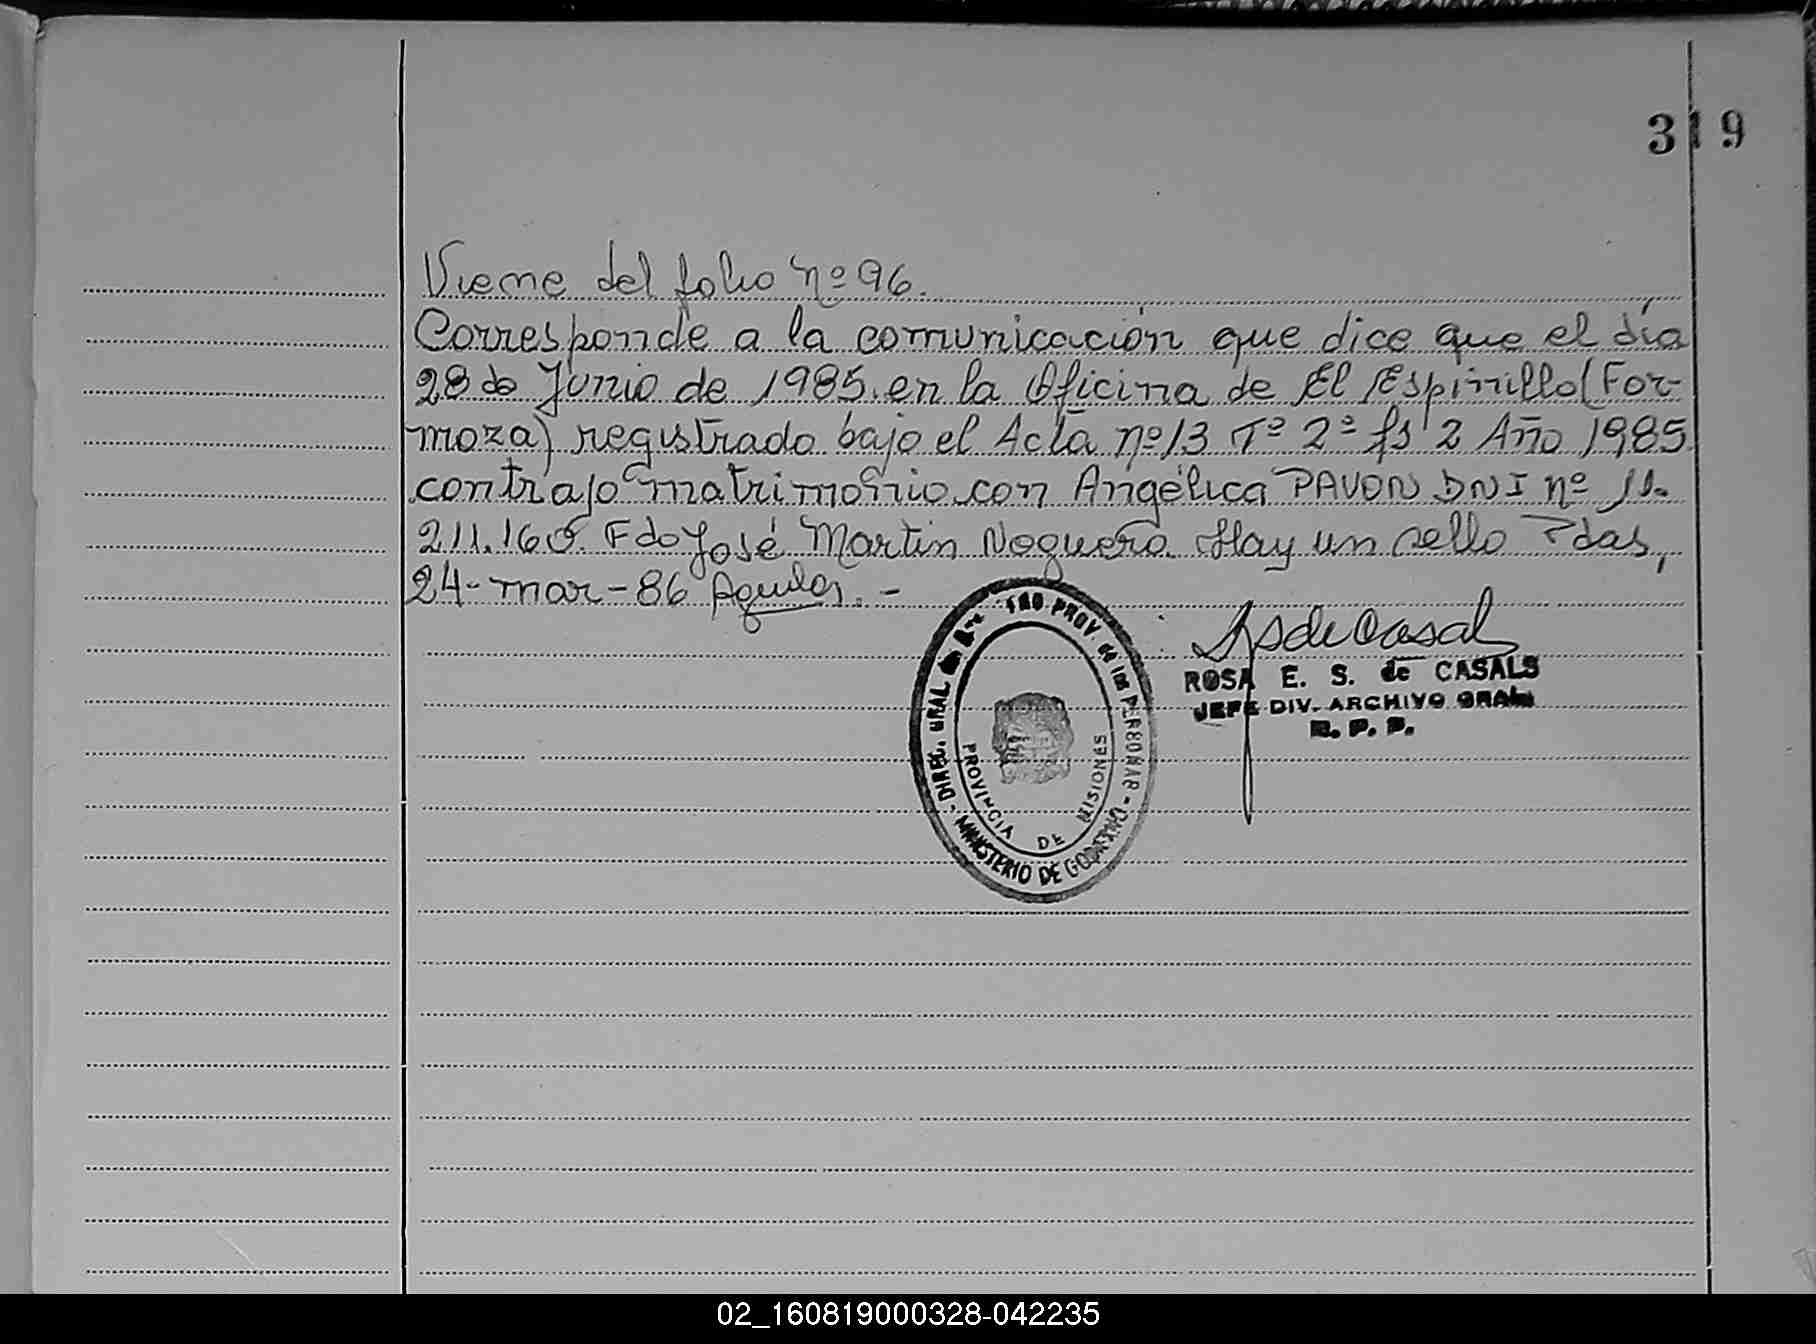 319
Viene del folio nº 96.
Corresponde a la comunicación que dice que el día
28 de Junio de 1985 en la Oficina de El Espinillo (For-
moza) registrado bajo el Acta nº 13 Tº 2º fs 2 Año 1985
contrajo matrimonio con Angélica PAVON DNI nº 11.
211.160. Fdo José Martin Noguera. Hay un sello Pdas,
24-mar-86 Aguilar. -
ROSA E. S. de CASALS
JEFE DIV. ARCHIVO GRAL
R. P. P.
DIREC. GRAL. PROV. de las PERSONAS
- MINISTERIO DE GOBIERNO -
PROVINCIA DE MISIONES
02_160819000328-042235